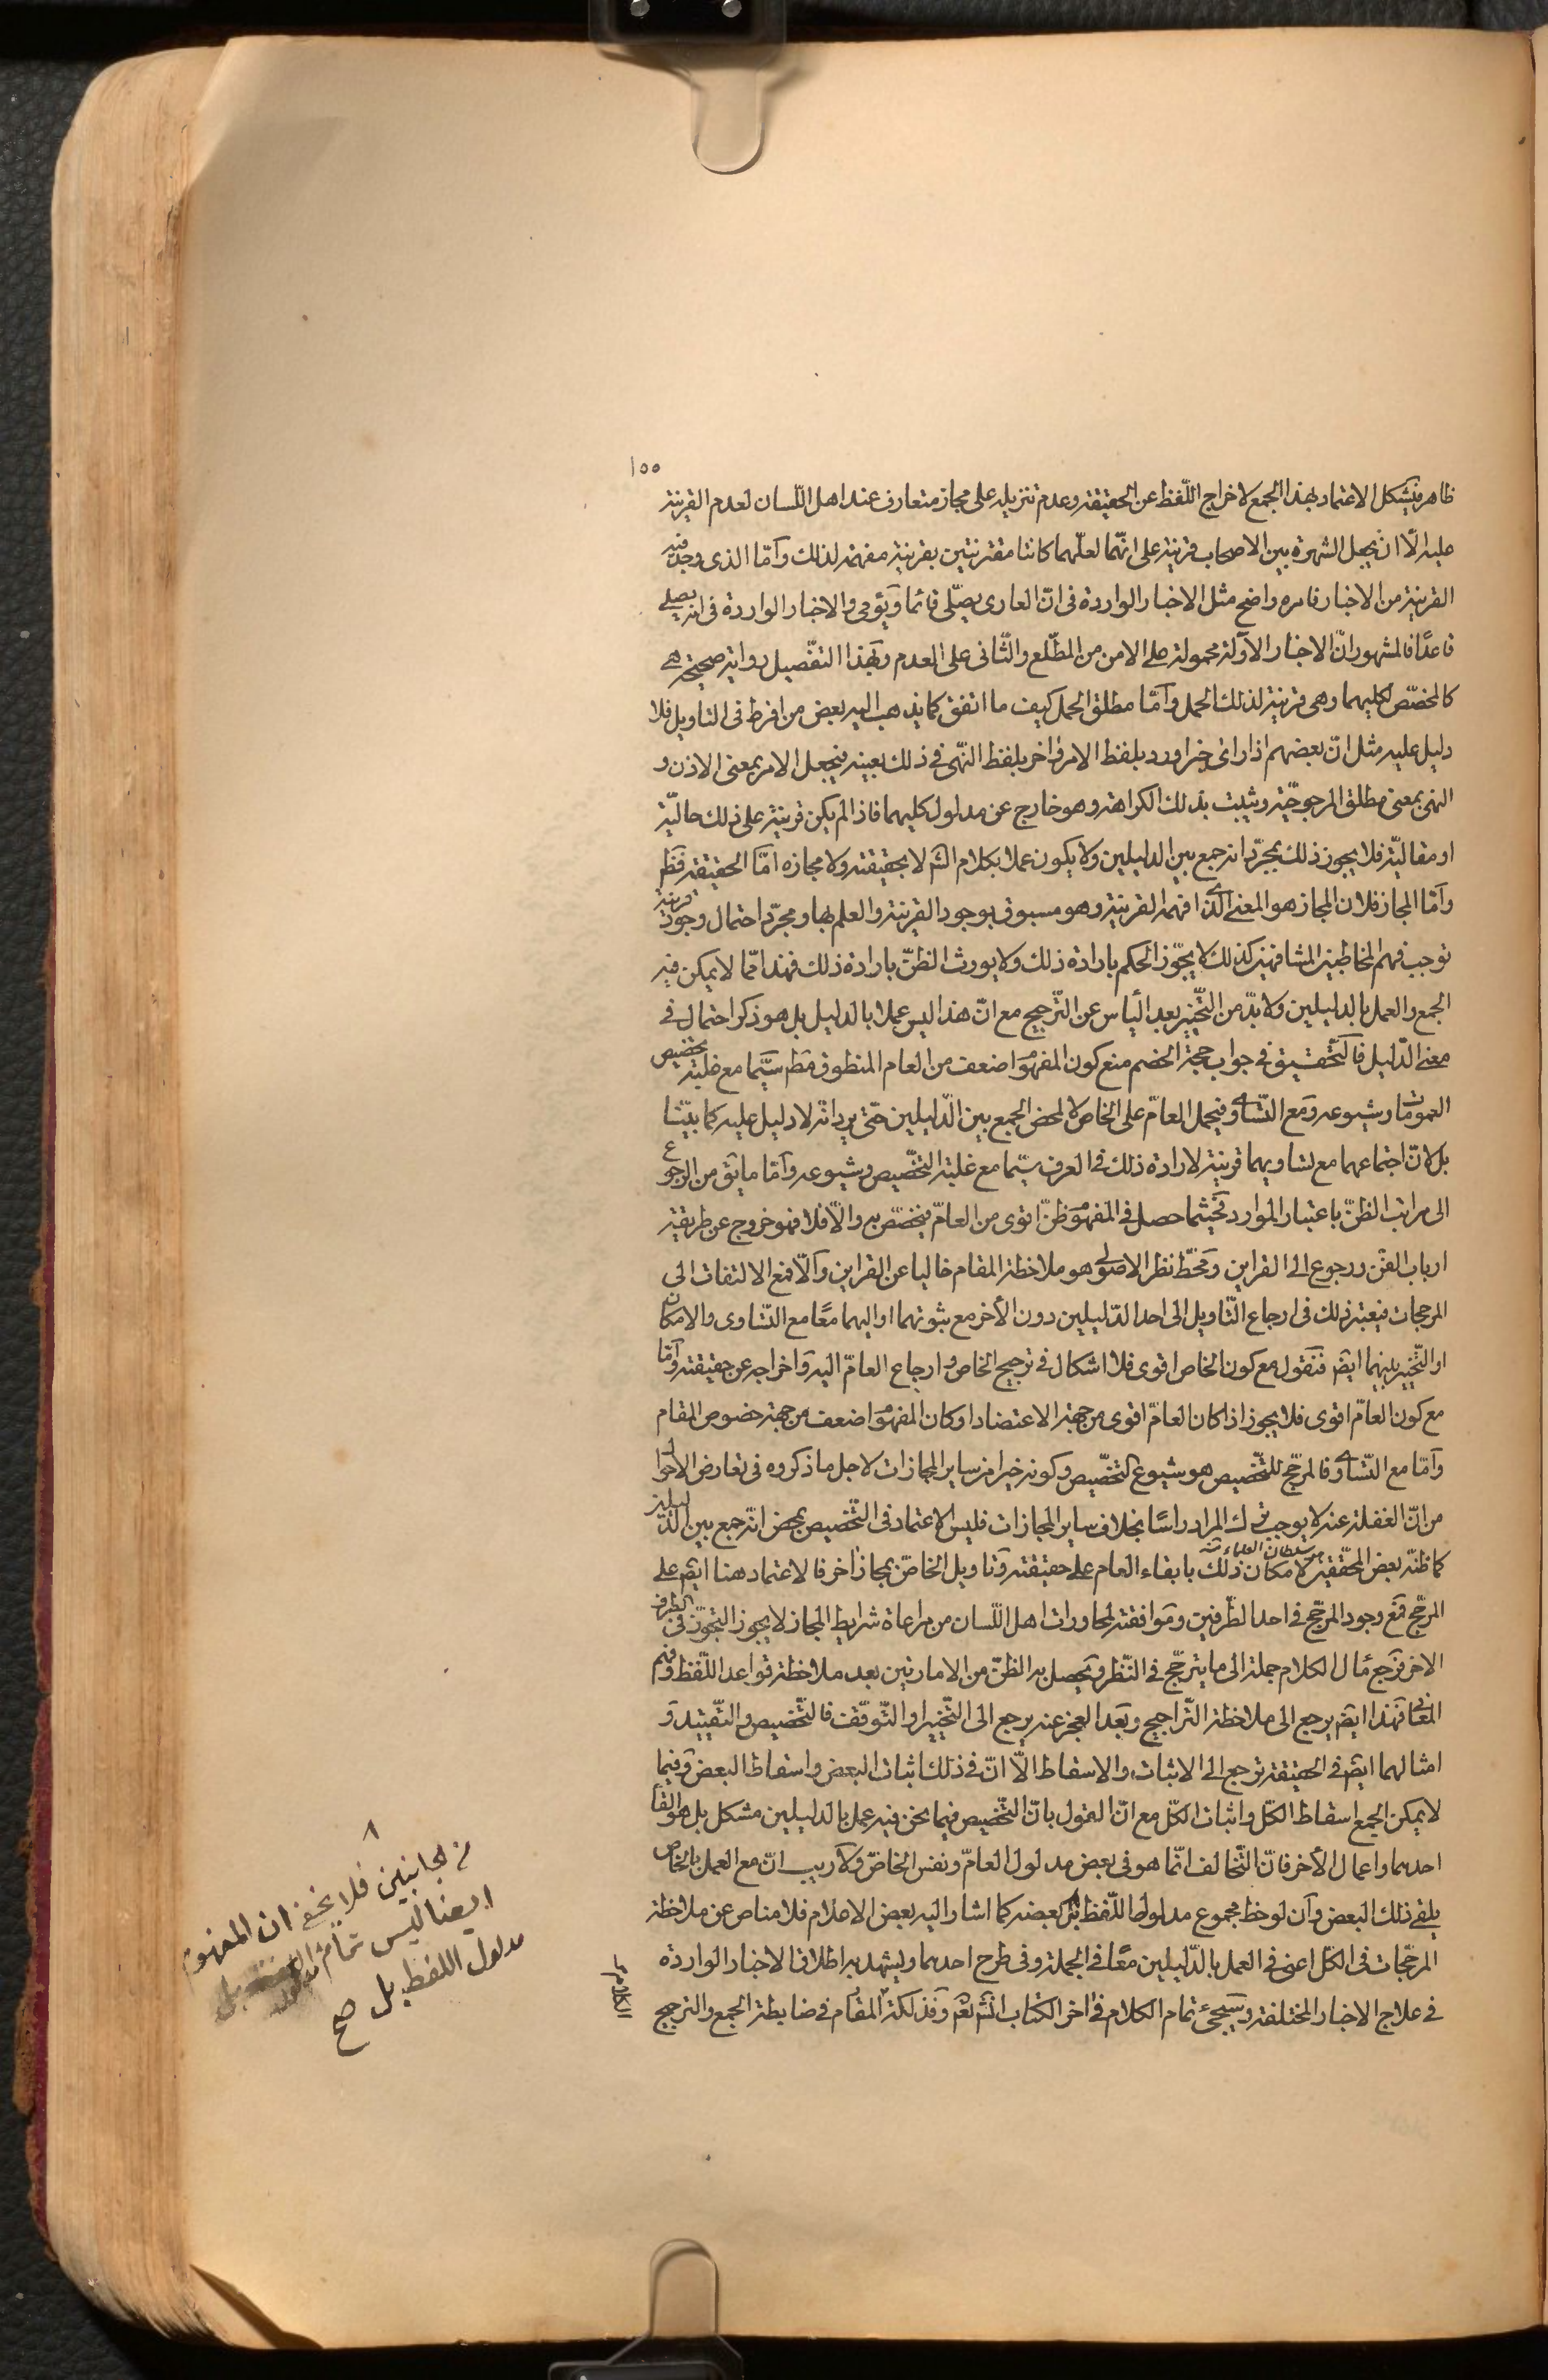 ١٥٥
ظاهر فيشكل الاعتماد بهذا الجمع لاخراج اللّفظ عن الحقيقة وعدم تنزيله على مجاز متعارف عند اهل اللّسان لعدم القرينة
عليه الّا ان يجعل الشهرة بين الاصحاب قرينة على انّهما لعلّهما كانتا مقترنتين بقرينة مفهمة لذلك وامّا الذى وجد فيه
القرينة من الاخبار فامره واضح مثل الاخبار الواردة فى انّ العارى يصلّى قائما ويؤمى والاخبار الواردة فى انه يصلى
قاعدًا فالمشهور انّ الاخبار الاولة محمولة على الامن من المطّلع والثّانى على العدم وبهذا التفصيل رواية صحيحة هى
كالمخصّص لكليهما وهى قرينة لذلك الحمل وامّا مطلق الحمل كيف ما اتفق كما يذهب اليه بعض من افرط فى التاويل فلا
دليل عليه مثل انّ بعضهم اذا راى خبرا ورد بلفظ الامر واخر بلفظ النّهى فى ذلك بعينه فيجعل الامر بمعنى الاذن و
النهى بمعنى مطلق المرجوحيّة ويثبت بذلك الكراهة وهو خارج عن مدلول كليهما فاذا لم يكن قرينة على ذلك حاليّة
او مقاليّة فلا يجوز ذلك بمجرّد انه جمع بين الدليلين ولا يكون عملا بكلام الشم لا بحقيقته ولا مجازه امّا الحقيقة فظم
وامّا المجاز فلان المجاز هو المعنى الّذى افهمه القرينة وهو مسبوق بوجود القرينة والعلم بها ومجرّد احتمال وجود قرينة
توجب فهم المخاطبين المشافهين كذلك لا يجوّز الحكم بارادة ذلك ولا يورث الظنّ بارادة ذلك فهذا ممّا لا يمكن فيه
الجمع والعمل بالدليلين ولا بدّ من التّخيير بعد اليأس عن التّرجيح مع انّ هذا ليس عملا بالدليل بل هو ذكر احتمال فى
معنى الدّليل فالتّحقيق فى جواب حجّة الخصم منع كون المفهوم اضعف من العام المنطوق مطم سيّما مع غلبة تخصيص
العمومات وشيوعه ومع التّساوى فيحمل العامّ على الخاصّ لا لمحض الجمع بين الدّليلين حتّى يرد انّه لا دليل عليه كما بيّنا
بل لانّ اجتماعهما مع تساويهما قرينة لارادة ذلك فى العرف سيّما مع غلبة التخصيص وشيوعه وامّا ما يقم من الرجوع
الى مراتب الظنّ باعتبار الموارد فحيثما حصل فى المفهوم ظنّ اقوى من العامّ فيخصّص به والّا فلا فهو خروج عن طريقة
ارباب الفنّ ورجوع الى القراين ومحطّ نظر الاصولى هو ملاحظة المقام خاليا عن القراين والّا فمع الالتفات الى
المرجحات فيعتبر ذلك فى ارجاع التّاويل الى احد الدّليلين دون الأخر مع ثبوتهما او اليهما معًا مع التّساوى والامكان
او التّخيير بينهما ايضم فنقول مع كون الخاص اقوى فلا اشكال فى ترجيح الخاص وارجاع العامّ اليه واخراجه عن حقيقته وامّا
مع كون العامّ اقوى فلا يجوز اذا كان العامّ اقوى من جهة الاعتضاد او كان المفهوم اضعف من جهة خصوص المقام
وامّا مع التّساوى فالمرجّح للتّخصيص هو شيوع التّخصيص وكونه خيرا من ساير المجازات لاجل ما ذكروه فى تعارض الاحوال
من انّ الغفلة عنه لا يوجب ترك المراد راسًا بخلاف ساير المجازات فليس الاعتماد فى التّخصيص بمحض انّه جمع بين الدّليلين
هو سلطان العلماء
كما ظنّه بعض المحقّقين لامكان ذلك بابقاء العام على حقيقته وتاويل الخاصّ بمجاز اخر فالاعتماد هنا ايضم على
المرجّح فمع وجود المرجّح فى احد الطّرفين وموافقته لمحاورات اهل اللّسان من مراعاة شرايط المجاز لا يجوز التجوّز فى الطرف
الاخر فرجع مال الكلام جملة الى ما يترجّح فى النّظر ويحصل به الظنّ من الامارتين بعد ملاحظة قواعد اللّفظ وفهم
المعنى فهذا ايضم يرجع الى ملاحظة التّراجيح وبعد العجز عنه يرجع الى التّخيير او التّوقّف فالتّخصيص والتّقييد و
امثالهما ايضم فى الحقيقة ترجع الى الاثبات والاسقاط الّا انّ فى ذلك اثبات البعض واسقاط البعض وفيما
لا يمكن الجمع اسقاط الكلّ واثبات الكلّ مع انّ القول بانّ التّخصيص فيما نحن فيه عمل بالدليلين مشكل بل هو الغاء
احدهما واعمال الأخر فانّ التّخالف انّما هو فى بعض مدلول العامّ ونفس الخاصّ ولا ريب انّ مع العمل بالخاص
يلغى ذلك البعض وان لوحظ مجموع مدلول اللّفظ بعضه كما اشار اليه بعض الاعلام فلا مناص عن ملاحظة
المرجّحات فى الكلّ اعنى فى العمل بالدّليلين معًا فى الجملة وفى طرح احدهما ويشهد به اطلاق الاخبار الواردة
فى علاج الاخبار المختلفة وسيجئ تمام الكلام فى اخر الكتاب انشم تعم وفذلكة المقام فى ضابطة الجمع والترجيح
الكلام
من الجانبين فلا يخفى ان المفهوم
ايضا ليس تمام
مدلول اللفظ بل صح